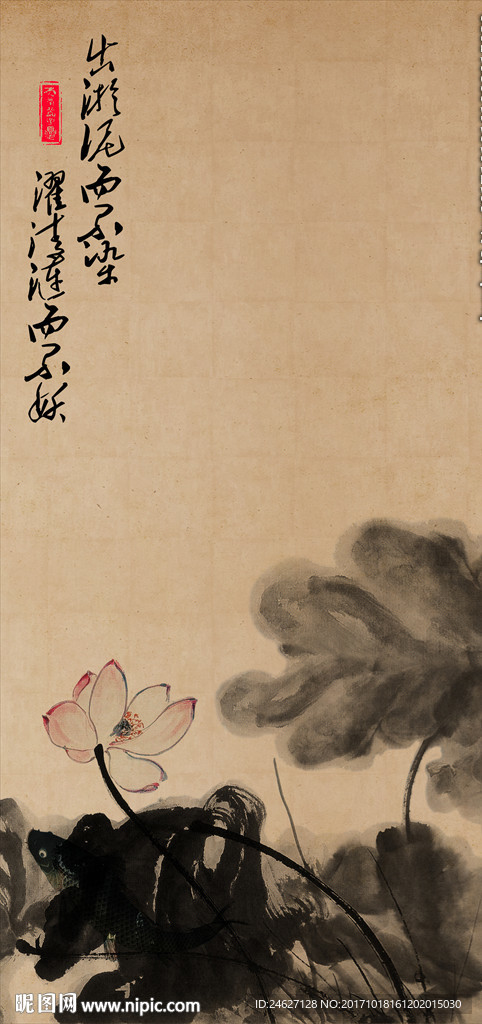 出淤泥而不染
濯清涟而不妖
昵图网 www.nipic.com
ID:24627128 NO:20171018161202015030